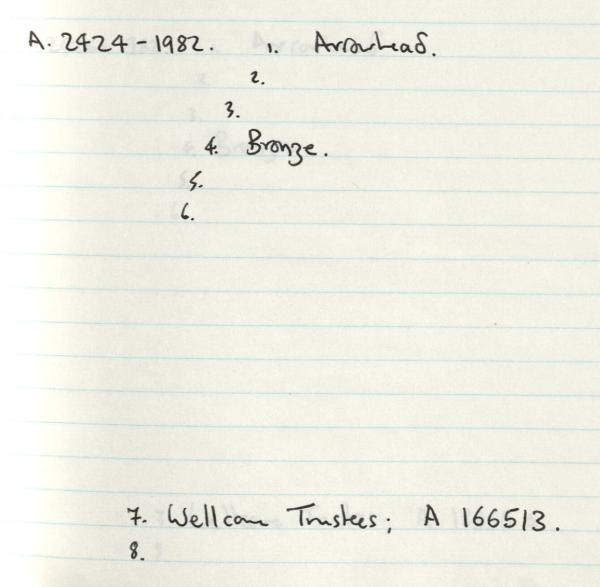 A. 2424-1982. 1. Arrowhead.
2.
3.
4. Bronze.
5.
6.
7. Wellcome Trustees; A 166513.
8.